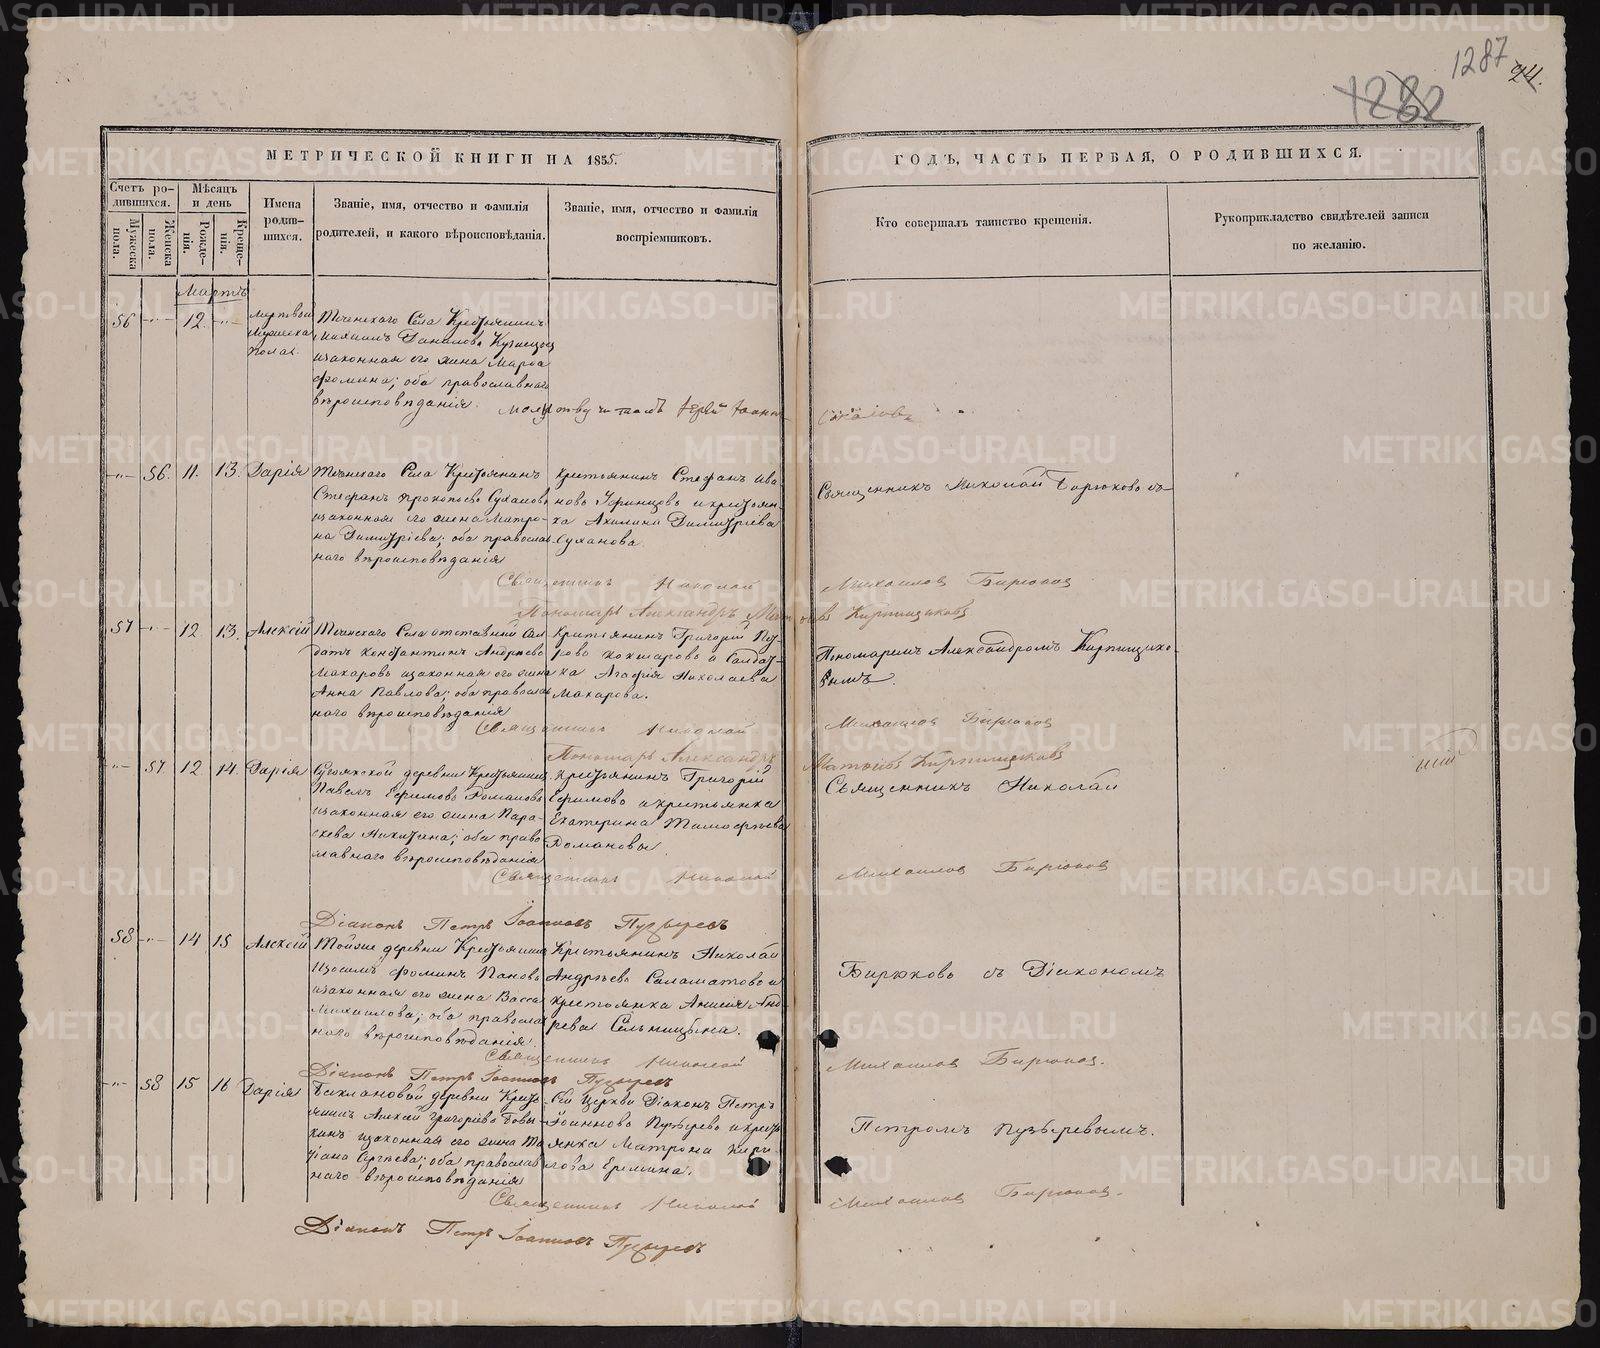 1287
24.
1282
МЕТРИЧЕСКОЙ КНИГИ НА 1855.
ГОДЪ, ЧАСТЬ ПЕРВАЯ, О РОДИВШИХСЯ.
Счетъ ро-
дившихся.
Мужеска
пола.
Женска
пола.
Мѣсяцъ
и день
Рожде-
нія.
Креще-
нія.
Имена
родив-
шихся.
Званіе, имя, отчество и фамилія
родителей, и какого вѣроисповѣданія.
Званіе, имя, отчество и фамилія
воспріемниковъ.
Кто совершалъ таинство крещенія.
Рукоприкладство свидѣтелей записи
по желанію.
Мартъ
56 -"- 12. -"-
мертвый
мужеска
пола.
Теченскаго Села Крестьянинъ
Данилов Кузнецов
изаконная его жена Марѳа
Фомина; оба православнаго
вѣроисповѣданія.
молитву читалъ Іерей Іоанн
-"- 56. 11. 13. Дарія
Теченскаго Села Крестьянинъ
Стефанъ Прокопьевъ Сухановъ
изаконная его жена Матро-
на Димитріева; оба православ-
наго вѣроисповѣданія
Крестьянинъ Стефанъ Ива
новъ Уфинцовъ икрестьян-
ка Акилина Димитріева
Суханова.
Священникъ Николай Бирюковъ съ
Священникъ Николай Михаиловъ Бирюковъ
Пономарь Александръ Матѳіевъ Кирпищиковъ
57 -"- 12. 13. Алексій
Теченскаго Села отставный Сол
датъ Константинъ Андреевъ
Макаровъ изаконная его жена
Анна Павлова; оба православ
наго вѣроисповѣданія
Крестьянинъ Григорій Пе-
тровъ Кокшаровъ и Солдат-
ка Агафія Николаева
Макарова.
Пономаремъ Александромъ Кирпищико-
вымъ.
Священникъ Николай Михаиловъ Бирюковъ
Пономарь Александръ Матѳіевъ Кирпищиковъ
-"- 57. 12 14. Дарія
деревни Крестьянинъ
Павелъ Ефимовъ Романовъ
изаконная его жена Пара-
скева Никитина; оба право
славнаго вѣроисповѣданія
Крестьянинъ Григорій
Ефимовъ икрестьянка
Екатерина Тимофѣева
Романовы.
Священникъ Николай
Священникъ Николай Михаиловъ Бирюковъ
Діаконъ Петръ Іоанновъ Пузыревъ
58 -"- 14 15 Алексій
Тойже деревни Крестьянинъ
Изосимъ Фоминъ Пановъ
изаконная его жена Васса
Михаилова; оба православ
наго вѣроисповѣданія.
Крестьянинъ Николай
Андреевъ Саламатовъ и
крестьянка Анисія Анд-
реева Сельницына.
Бирюковъ съ Діакономъ
Священникъ Николай Михаиловъ Бирюковъ.
Діаконъ Петръ Іоанновъ Пузыревъ
-"- 58 15 16 Дарія
Баклановой деревни Кресть-
янинъ Алексій Григорьевъ Бовы-
кинъ изаконная его жена Та
тіана Сергѣева; оба православ
наго вѣроисповѣданія
Сей Церкви Діаконъ Петръ
Іоанновъ Пузыревъ икресть
янка Матрона Кири-
лова Еремина.
Петромъ Пузыревымъ.
Священникъ Николай Михаиловъ Бирюковъ.
Діаконъ Петръ Іоанновъ Пузыревъ
METRIKI.GASO-URAL.RU